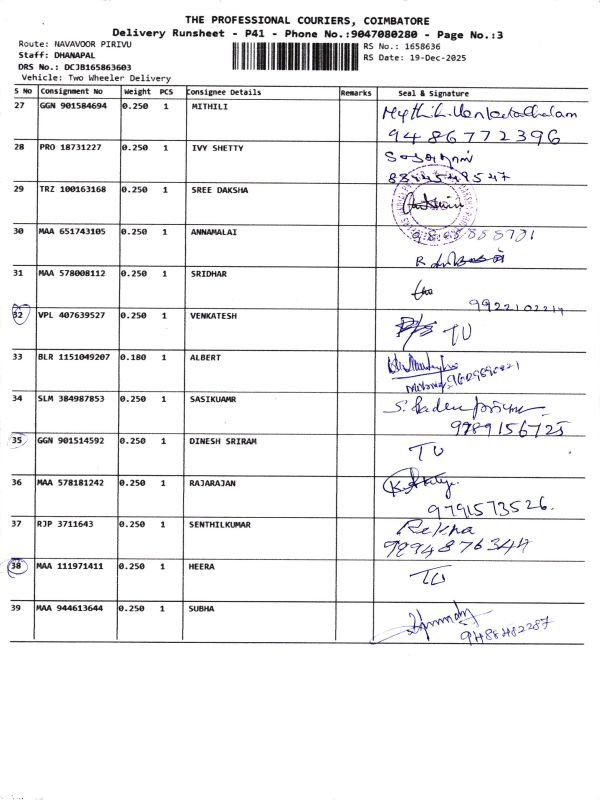 THE PROFESSIONAL COURIERS, COIMBATORE
Delivery Runsheet - P41 - Phone No.:9047080280 - Page No.:3
Route: NAVAVOOR PIRIVU
Staff: DHANAPAL
DRS No.: DCJB165863603
Vehicle: Two Wheeler Delivery
RS No.: 1658636
RS Date: 19-Dec-2025
S No Consignment No Weight PCS Consignee Details Remarks Seal & Signature
27 GGN 901584694 0.250 1 MITHILI
9486772396
28 PRO 18731227 0.250 1 IVY SHETTY
29 TRZ 100163168 0.250 1 SREE DAKSHA
30 MAA 651743105 0.250 1 ANNAMALAI
31 MAA 578008112 0.250 1 SRIDHAR
32 VPL 407639527 0.250 1 VENKATESH TU
33 BLR 1151049207 0.180 1 ALBERT
34 SLM 384987853 0.250 1 SASIKUAMR
9789156725
35 GGN 901514592 0.250 1 DINESH SRIRAM TU
36 MAA 578181242 0.250 1 RAJARAJAN
9791573526.
37 RJP 3711643 0.250 1 SENTHILKUMAR Rekha
9894876344
38 MAA 111971411 0.250 1 HEERA TU
39 MAA 944613644 0.250 1 SUBHA
9488482287